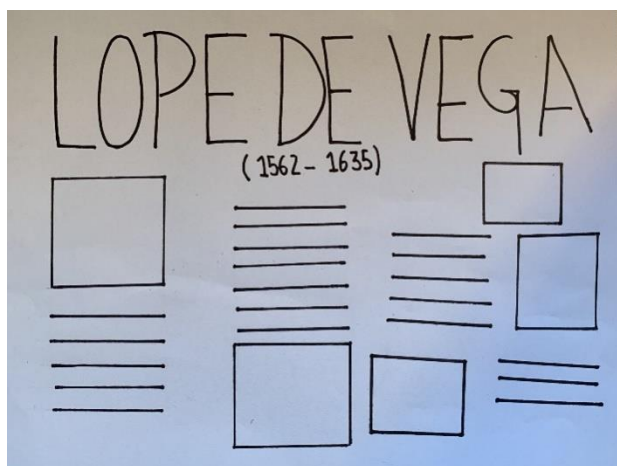 LOPE DE VEGA
(1562 - 1635)